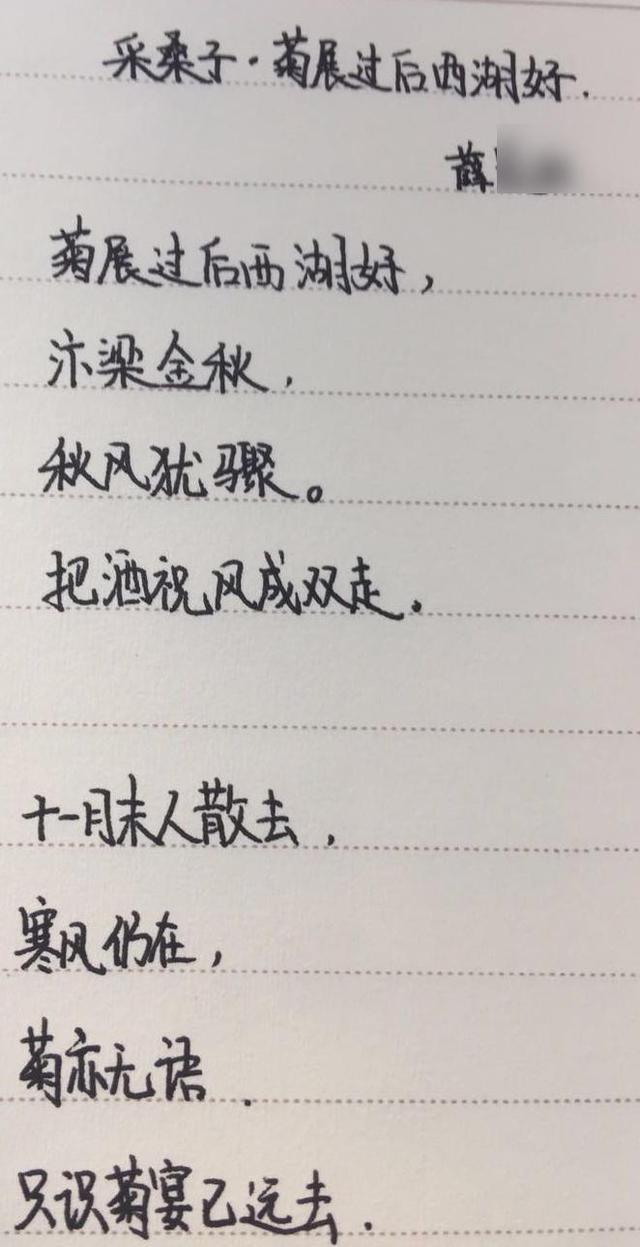 采桑子·菊展过后西湖好.
薛
菊展过后西湖好，
汴梁金秋，
秋风犹骤。
把酒祝风成双走.
十一月末人散去，
寒风仍在，
菊亦无语.
只识菊宴已远去.